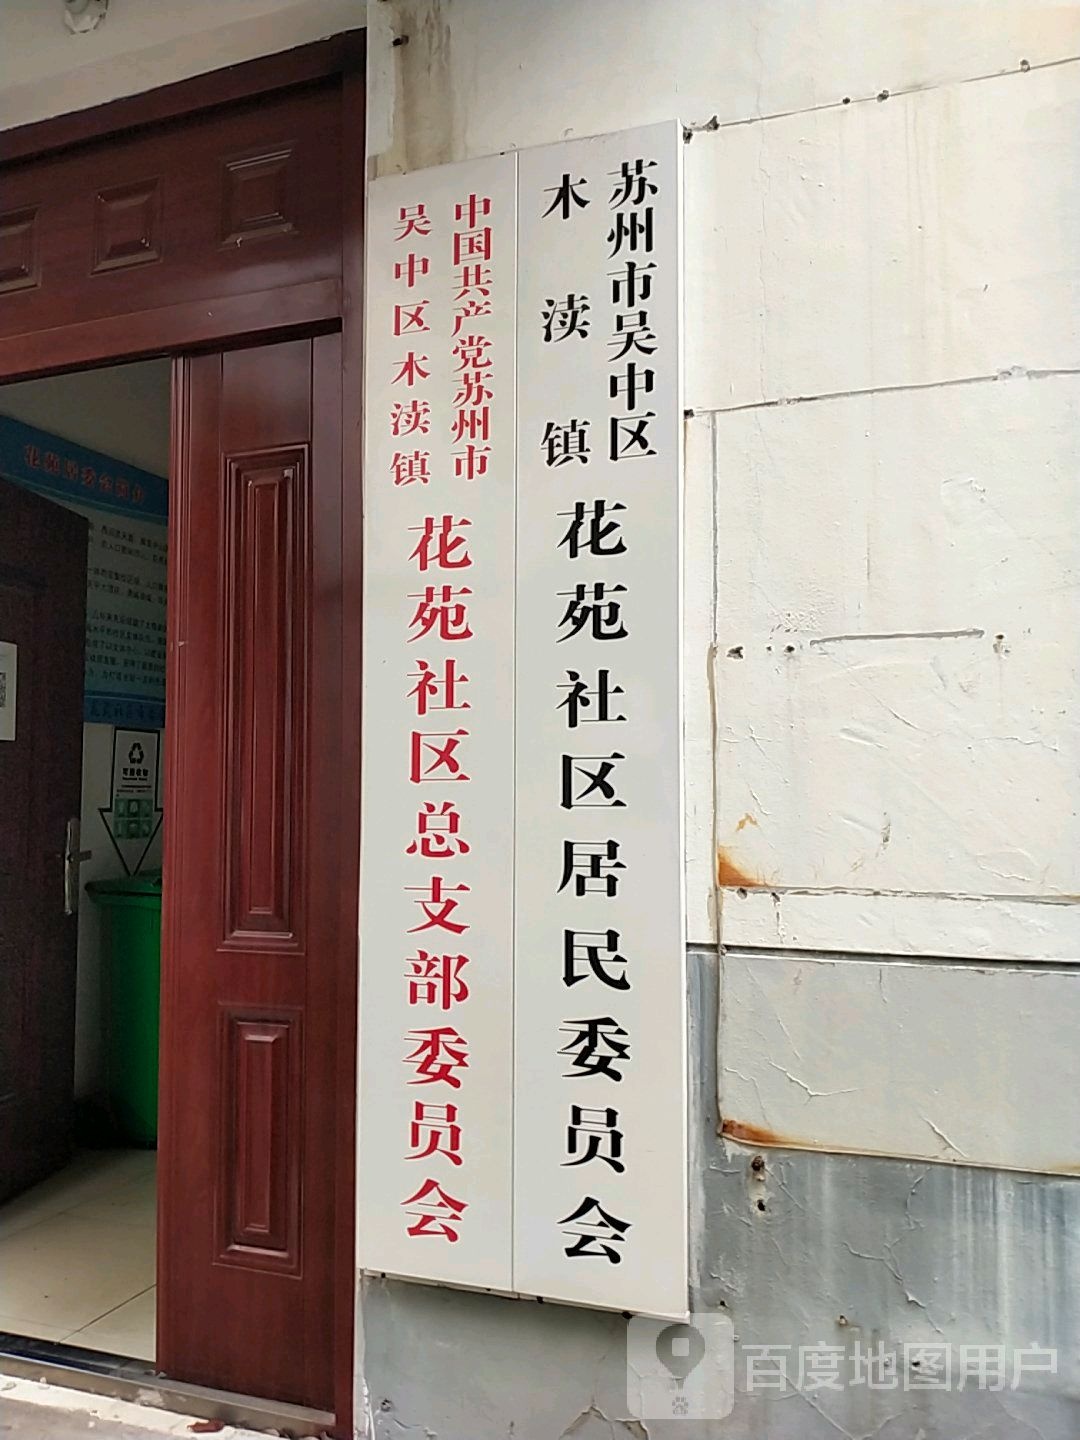 苏州市吴中区
木渎镇
花苑社区居民委员会
中国共产党苏州市
吴中区木渎镇
花苑社区总支部委员会
花苑居委会简介
可回收物
百度地图用户